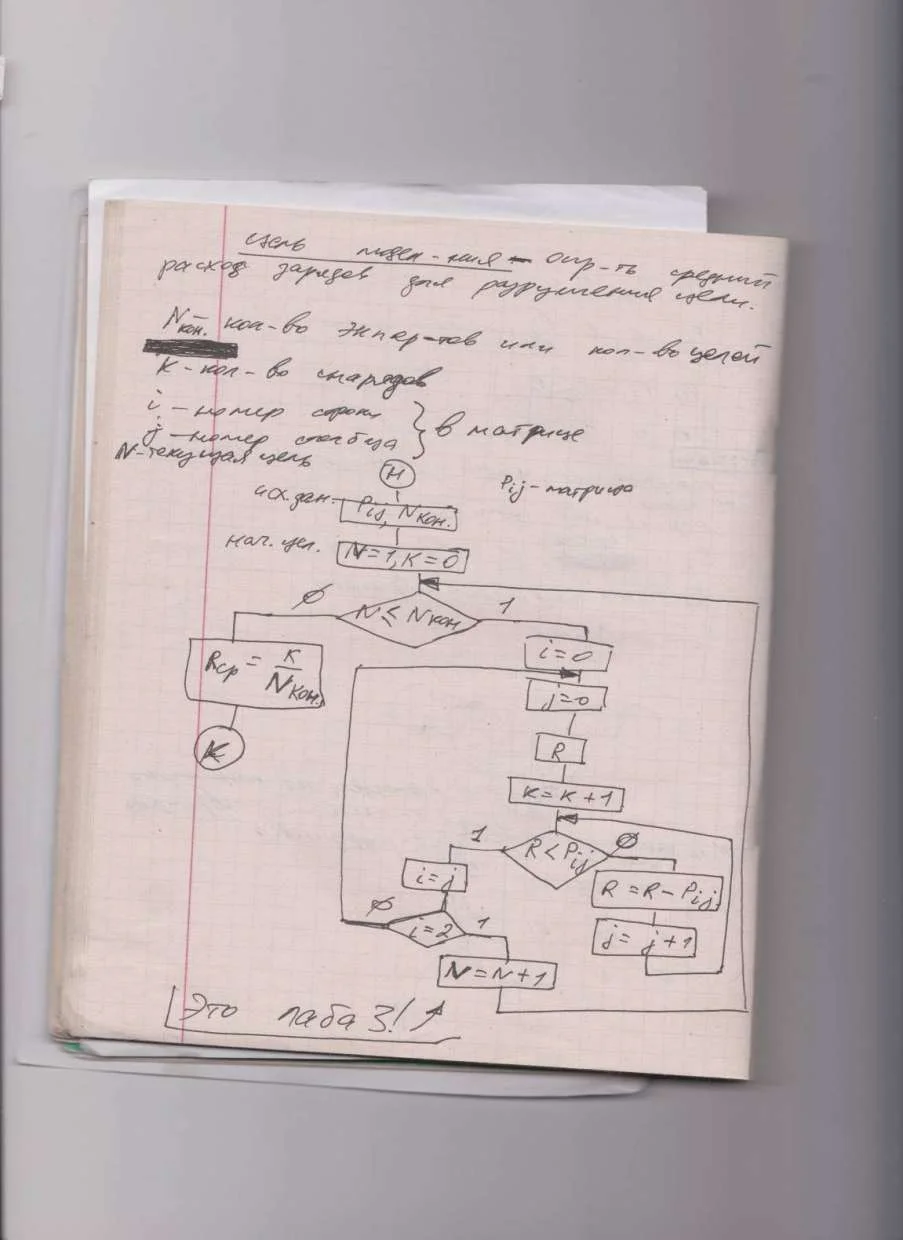 Цель модел-ния - опр-ть средний
расход зарядов для разрушения цели.
Nкон. - кол-во экспер-тов или кол-во целей
K - кол-во снарядов
i - номер строки
j - номер столбца } в матрице
N - текущая цель
Н
Pij - матрица
исх. дан. Pij, Nкон.
нач. цел. N=1, K=0
N ≤ Nкон
0
1
Rср = K / Nкон.
K
i=0
j=0
R
K=K+1
R < Pij
1
0
i=j
R=R-Pij
i=2
0
1
j=j+1
N=N+1
Это лаба 3!